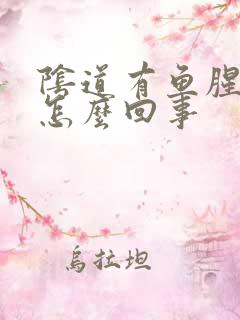 陰道有魚腥
怎麼回事
烏拉坦